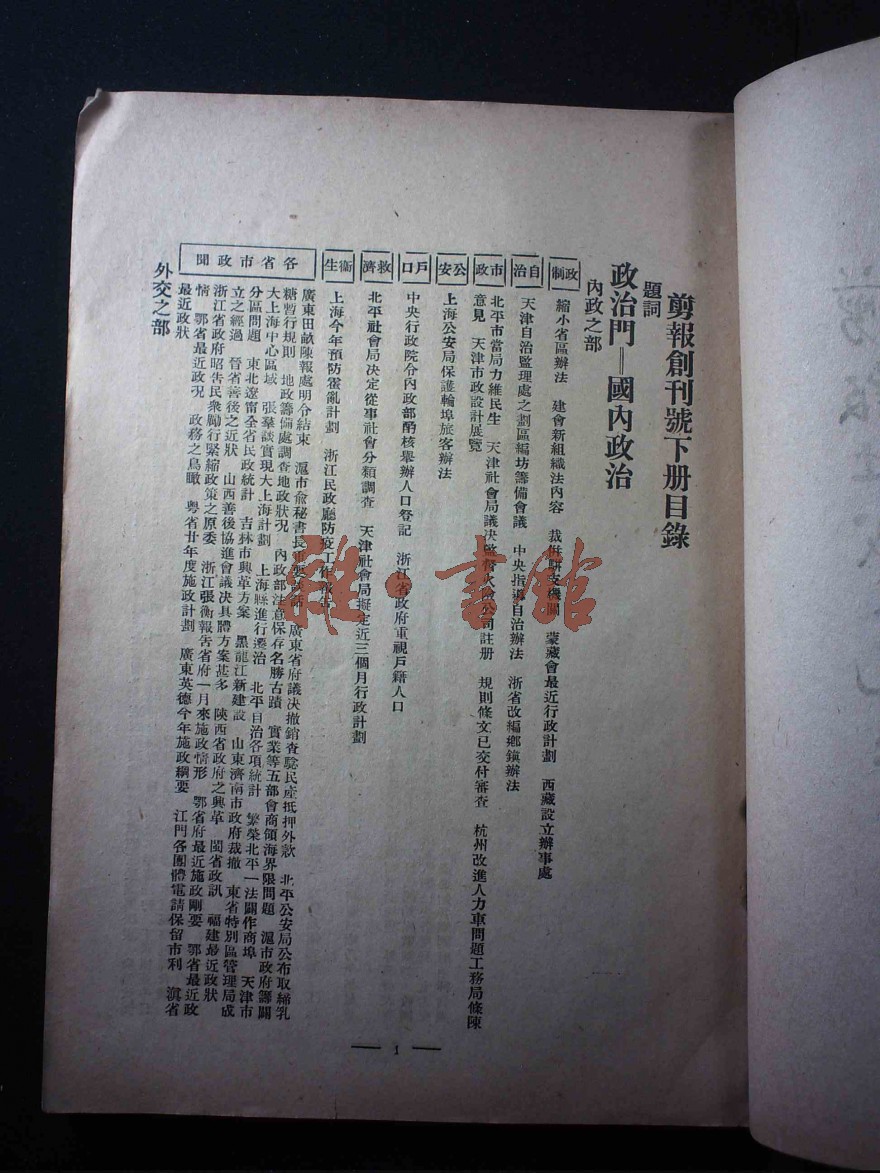 剪報創刊號下册目錄
題詞
政治門＝國內政治
內政之部
政制 縮小省區辦法 建會新組織法內容 裁併駢支機關 蒙藏會最近行政計劃 西藏設立辦事處
自治 天津自治監理處之劃區編坊籌備會議 中央指導自治辦法 浙省改編鄉鎭辦法
市政 北平市當局力維民生 天津社會局議决監督火險公司註册 規則條文已交付審查 杭州改進人力車問題工務局條陳
意見 天津市政設計展覽
公安 上海公安局保護輪埠旅客辦法
戶口 中央行政院令內政部酌核舉辦人口登記 浙江省政府重視戶籍人口
救濟 北平社會局决定從事社會分類調查 天津社會局擬定近三個月行政計劃
衞生 上海今年預防霍亂計劃 浙江民政廳防疫工作報告
各省市政聞 廣東田畝陳報處明令結束 滬市俞秘書長重要談話 廣東省府議决撤銷查騐民產抵押外款 北平公安局公布取締乳
糖暫行規則 地政籌備處調查地政狀况 內政部注意保存名勝古蹟 實業等五部會商領海界限問題 滬市政府籌闢
大上海中心區域 張羣談實現大上海計劃 上海縣進行遷治 北平自治各項統計 繁榮北平一法闢作商埠 天津市
分區問題 東北遼甯全省民政統計 吉林市興革方案 黑龍江新建設 山東濟南市政府裁撤 東省特別區管理局成
立之經過 晉省善後之近狀 山西善後協進會議决具體方案甚多 陝西省政府之興革 閩省政訊 福建最近政狀
浙江省政府昭吿民衆勵行緊縮政策之原委 浙江張衡報吿省府一月來施政情形 鄂省府最近施政剛要 鄂省最近政
情 鄂省最近政况 政務之鳥瞰 粤省廿年度施政計劃 廣東英德今年施政綱要 江門各團體電請保留市利 滇省
最近政狀
外交之部
— 1 —
雜·書館